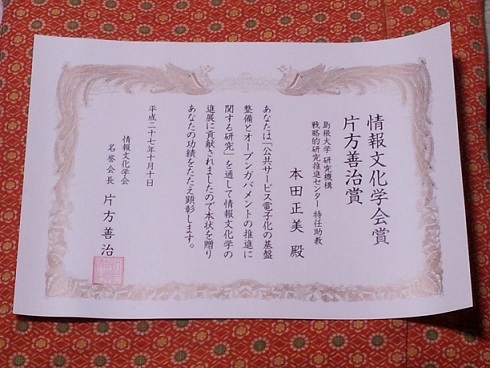 情報文化学会賞
片方善治賞
島根大学 研究機構
戦略的研究推進センター 特任助教
本田正美 殿
あなたは「公共サービス電子化の基盤
整備とオープンガバメントの推進に
関する研究」を通して情報文化学の
進展に貢献されましたので本状を贈り
あなたの功績をたたえ顕彰します。
平成二十七年十月十日
情報文化学会
名誉会長 片方善治